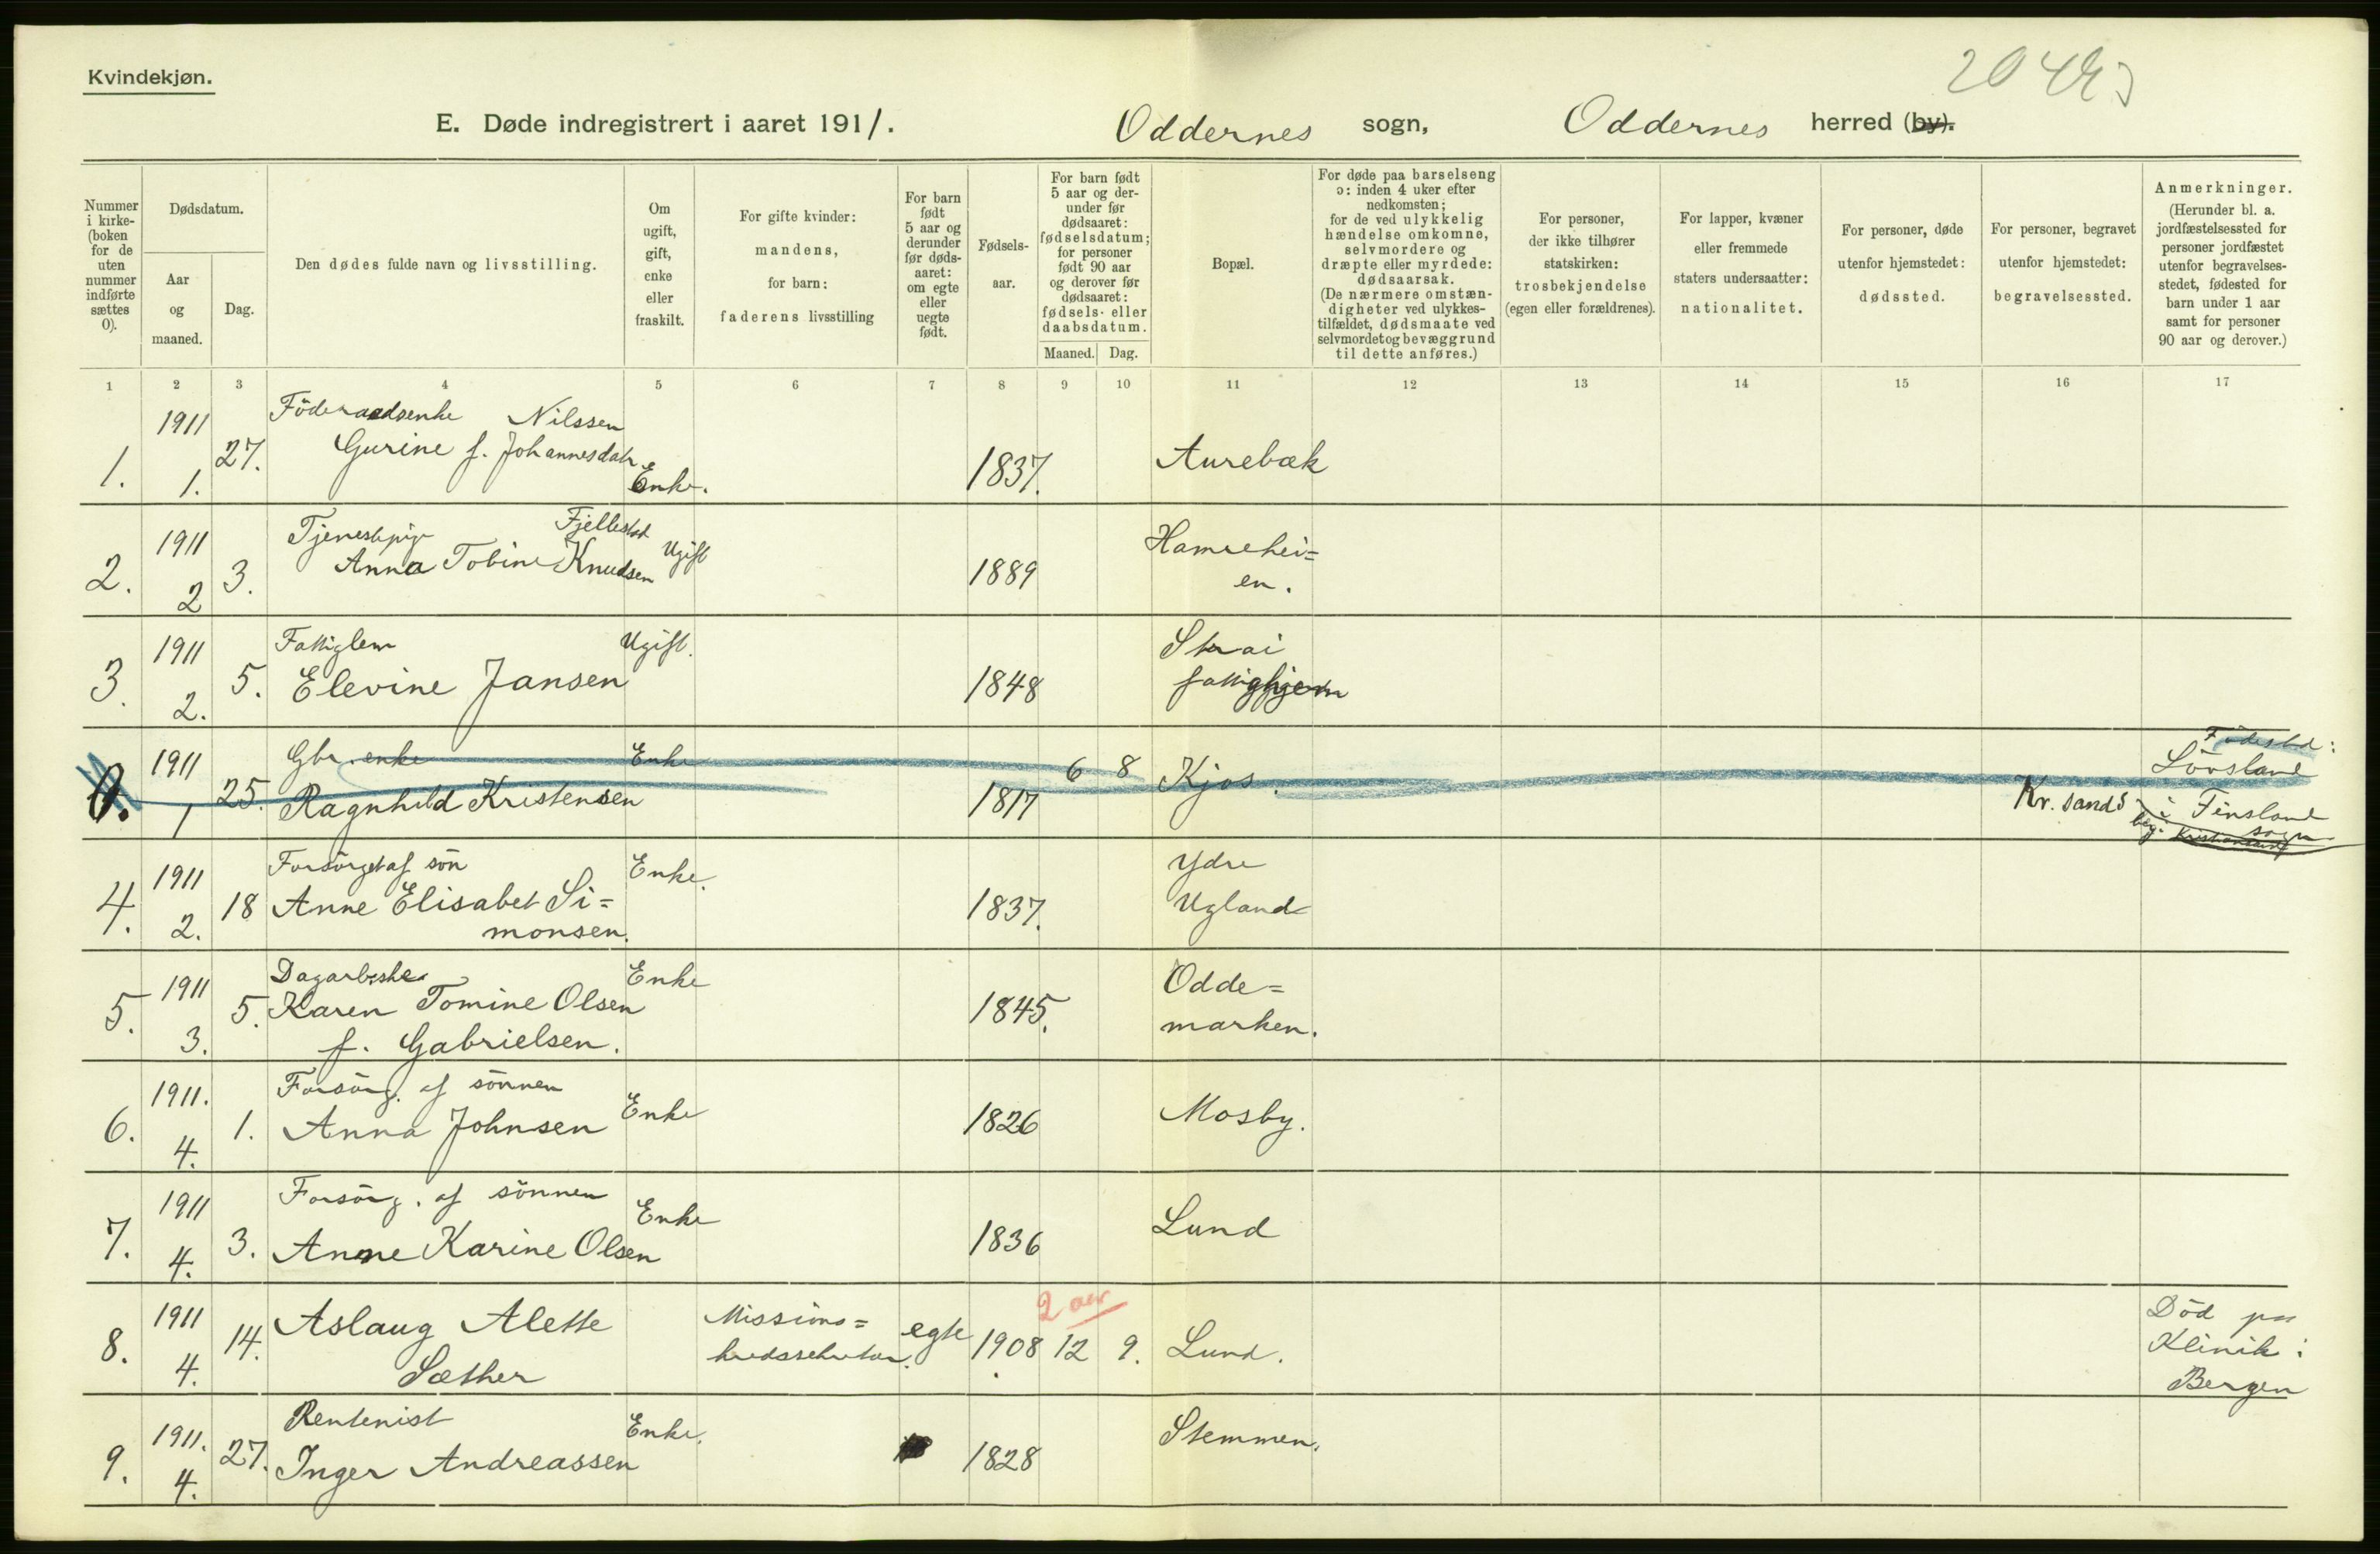 Kvindekjøn.
E. Døde indregistrert i aaret 1911. Oddernes sogn, Oddernes herred (by).
Nummer i kirke-(boken for de uten nummer indførte sættes 0).
Dødsdatum.
Aar og maaned.
Dag.
Den dødes fulde navn og livsstilling.
Om ugift, gift, enke eller fraskilt.
For gifte kvinder: mandens, for barn: faderens livsstilling
For barn født 5 aar og derunder før døds-aaret: om egte eller uegte født.
Fødsels-aar.
For barn født 5 aar og der-under før dødsaaret: fødselsdatum; for personer født 90 aar og derover før dødsaaret: fødsels- eller daabsdatum.
Maaned. Dag.
Bopæl.
For døde paa barselseng ɔ: inden 4 uker efter nedkomsten; for de ved ulykkelig hændelse omkomne, selvmordere og dræpte eller myrdede: dødsaarsak. (De nærmere omstæn-digheter ved ulykkes-tilfældet, dødsmaate ved selvmordet og bevæggrund til dette anføres.)
For personer, der ikke tilhører statskirken: trosbekjendelse (egen eller forældrenes).
For lapper, kvæner eller fremmede staters undersaatter: nationalitet.
For personer, døde utenfor hjemstedet: dødssted.
For personer, begravet utenfor hjemstedet: begravelsessted.
Anmerkninger. (Herunder bl. a. jordfæstelsessted for personer jordfæstet utenfor begravelses-stedet, fødested for barn under 1 aar samt for personer 90 aar og derover.)
1 2 3 4 5 6 7 8 9 10 11 12 13 14 15 16 17
1. 1911 1. 27. Föderaadsenke Nilssen
Gurine f. Johannesdatr. Enke. 1837. Aurebæk
2. 1911 2 3. Tjenestepige Fjellestad
Anna Tobine Knudsen Ugift 1889 Hamrehei=
en.
3. 1911 2. 5. Fattiglem Ugift.
Elevine Jansen 1848 Strai
fattighjem
0. 1911 1 25. Gbr. enke Enke
Ragnhild Kristensen 1817 6 8 Kjos. Kr. sand Födested:
Lövsland
i Finsland
sogn
beg. Kristiansand
4. 1911 2. 18 Forsörget af sön Enke.
Anne Elisabet Si=
monsen. 1837. Ydre
Ugland
5. 1911 3. 5. Dagarbeiske Enke
Karen Tomine Olsen
f. Gabrielsen. 1845. Odde=
marken.
6. 1911. 4. 1. Forsörg. af sönnen
Anna Johnsen Enke 1826 Mosby.
7. 1911 4. 3. Forsörg. af sönnen
Anne Karine Olsen Enke 1836 Lund
8. 1911 4. 14. Aslaug Alette
Sæther Missions= egte 1908 2 aar 12 9. Lund. Död paa
Klinik i
Bergen
9. 1911. 4. 27. Rentenist Enke.
Inger Andreassen 1828 Stemmen.